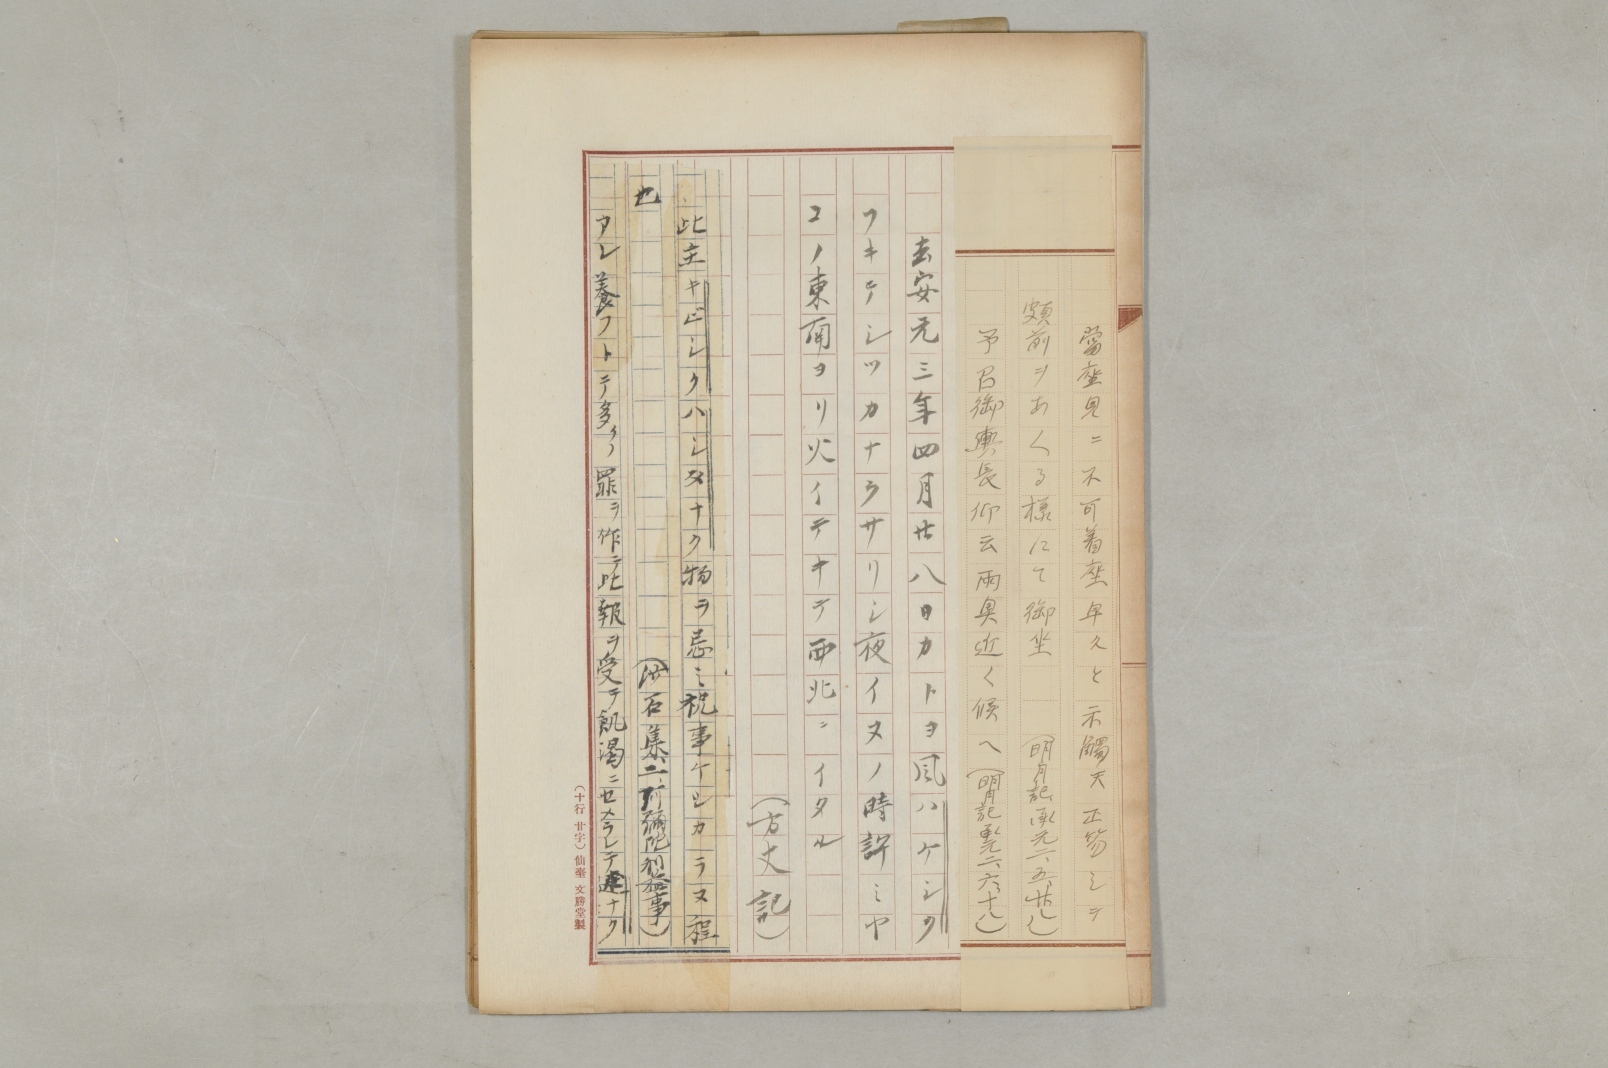 當座見ニ不可着座早々と示觸天正笏シテ
頗前ヲあくる様にて御坐（明月記承元二、五、廿八）
予召御輿長仰云両奥近く候へ（明月記承元二、六、十八）
去安元三年四月廿八日カトヨ風ハケシク
フキテシツカナラサリシ夜イヌノ時許ミヤ
コノ東南ヨリ火イテキテ西北ニイタル
（方丈記）
此主キビシクハシタナク物ヲ忌ミ祝事ケシカラヌ程
也（沙石集二、阿彌陀利益事）
アレ養フトテ多クノ罪ヲ作テ此報ヲ受テ飢渇ニセメラレテ連ナク
（十行 廿字）仙臺 文勝堂製